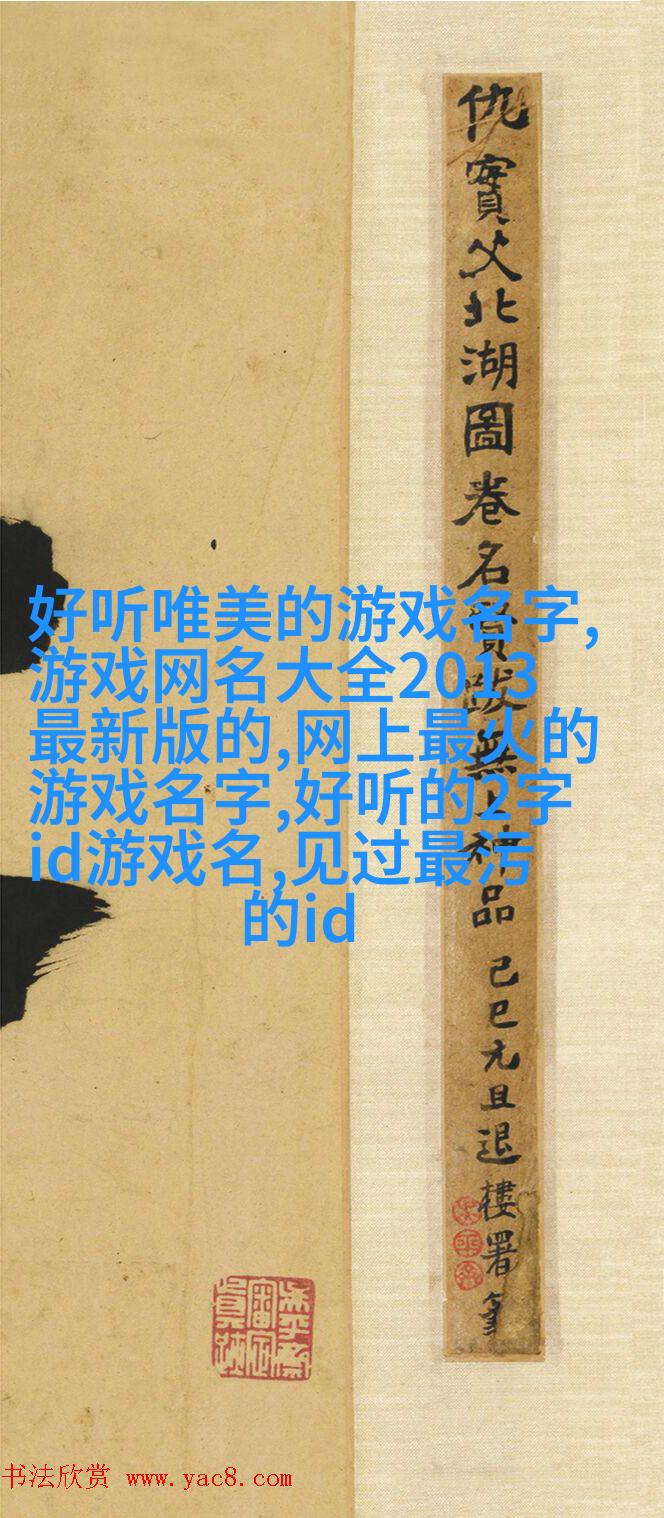 仇實父北湖圖卷名賢跋無上神品
己巳元旦退樓署
好听唯美的游戏名字,
游戏网名大全2013
最新版的,网上最火的
游戏名字,好听的2字
id游戏名,见过最污
的id
书法欣赏 www.yac8.com